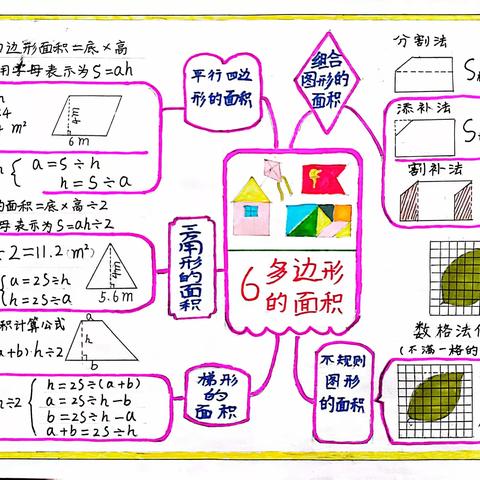 边形面积=底×高
用字母表示为S=ah
m²
4m
6m
a=S÷h
h=S÷a
平行四边
形的面积
的面积=底×高÷2
母表示为S=ah÷2
÷2=11.2(m²)
a=2S÷h
h=2S÷a
4m
5.6m
三角形的面积
积计算公式
a+b)·h÷2
a
h
b
h÷2
h=2S÷(a+b)
a=2S÷h-b
b=2S÷h-a
a+b=2S÷h
梯形
的
面积
6 多边形
的面积
组合
图形的
面积
分割法
S
添补法
S
割补法
不规则
图形
的面积
数格法
(不满一格的